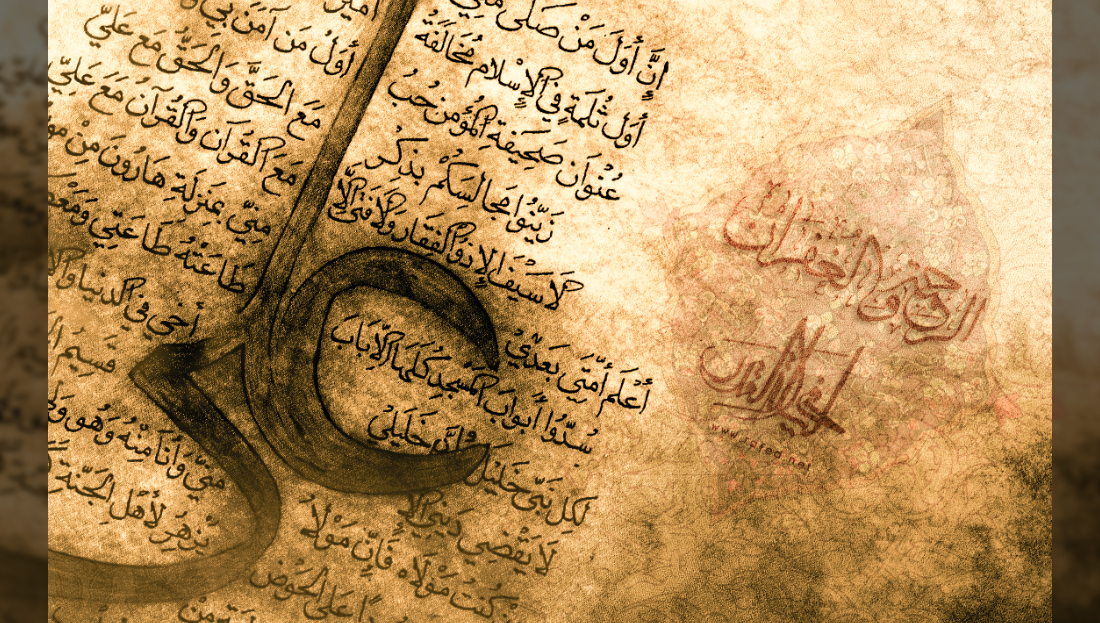 إِنَّ أَوَّلَ مَنْ صَلَّى مَعِي
أَوَّلُ ثُلْمَةٍ فِي الإِسْلَامِ مُخَالَفَةُ
عُنْوَانُ صَحِيفَةِ الْمُؤْمِنِ حُبُّ
زَيِّنُوا مَجَالِسَكُمْ بِذِكْرِ
لَا سَيْفَ إِلَّا ذُو الْفَقَارِ وَلَا فَتَى إِلَّا
أَعْلَمُ أُمَّتِي بَعْدِي
سُدُّوا أَبْوَابَ الْمَسْجِدِ كُلَّهَا إِلَّا بَابَ
لِكُلِّ نَبِيٍّ خَلِيلٌ وَإِنَّ خَلِيلِي
لَا يَقْضِي دَيْنِي إِلَّا
كُنْتُ مَوْلَاهُ فَإِنَّ مَوْلَاهُ
عَلَى الْحَوْضِ
أَوَّلُ مَنْ آمَنَ بِي
مَعَ الْحَقِّ وَالْحَقُّ مَعَ عَلِيٍّ
مَعَ الْقُرْآنِ وَالْقُرْآنُ مَعَ عَلِيٍّ
مِنِّي بِمَنْزِلَةِ هَارُونَ مِنْ
طَاعَتُهُ طَاعَتِي
أَخِي فِي الدُّنْيَا
قَسِيمُ
مِنِّي وَأَنَا مِنْهُ وَهُوَ
يَزْهَرُ لِأَهْلِ الْجَنَّةِ
الرحمة والغفران